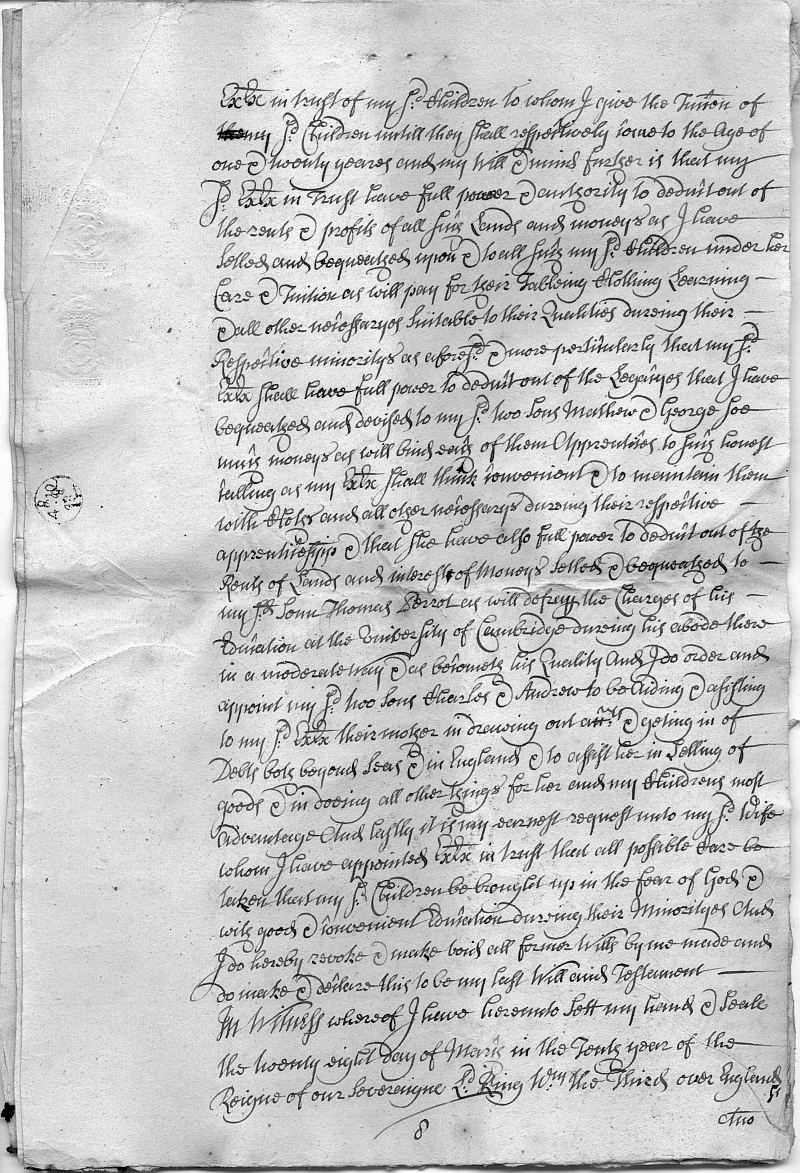 Exix in trust of my sd. Children to whom I give the Tuition of
the my sd. Children untill they shall respectively come to the Age of
one & twenty yeares and my will & mind further is that my
sd. Exix in Trust have full power & authority to deduct out of
the rents & profits of all such Lands and moneys as I have
setled and bequeathed upon & to all such my sd. Children under her
Care & Tuition as will pay for their Tableing Clothing Learning —
& all other necessaryes suitable to their Qualities dureing their —
Respective minoritys as aforesd. & more perticularly that my sd.
Exix shall have full power to deduct out of the Legacyes that I have
bequeathed and devised to my sd. two Sons Mathew & George soe
much moneys as will bind each of them Apprentices to such honest
calling as my Exix shall think convenient & to maintain them
with Cloths and all other necessarys during their respective —
apprenticeships & that she have also full power to deduct out of the
Rents of Lands and interest of Moneys setled & bequeathed to —
my sd. Sonn Thomas Perrot as will defray the Charges of his —
Education at the University of Cambridge dureing his abode there
in a moderate way & as becometh his Quality And I do order and
appoint my sd. two Sons Charles & Andrew to be Aiding & assisting
to my sd. Exix their mother in drawing out acctts & geting in of
Debts both beyond Seas & in England & to assist her in Selling of
goods & in doeing all other things for her and my Childrens most
Advantage And lastly it is my earnest request unto my sd. Wife
whom I have appointed Exix in trust that all possible Care be
taken that my sd. Children be brought up in the fear of God &
with good & convenient Education dureing their Minorityes And
I do hereby revoke & make void all former Wills by me made and
do make & declare this to be my last Will and Testament —
In Witness whereof I have hereunto Sett my hand & Seale
the twenty eight day of March in the Tenth year of the
Reigne of our Sovereigne Ld. King Wm. the Third over England
8